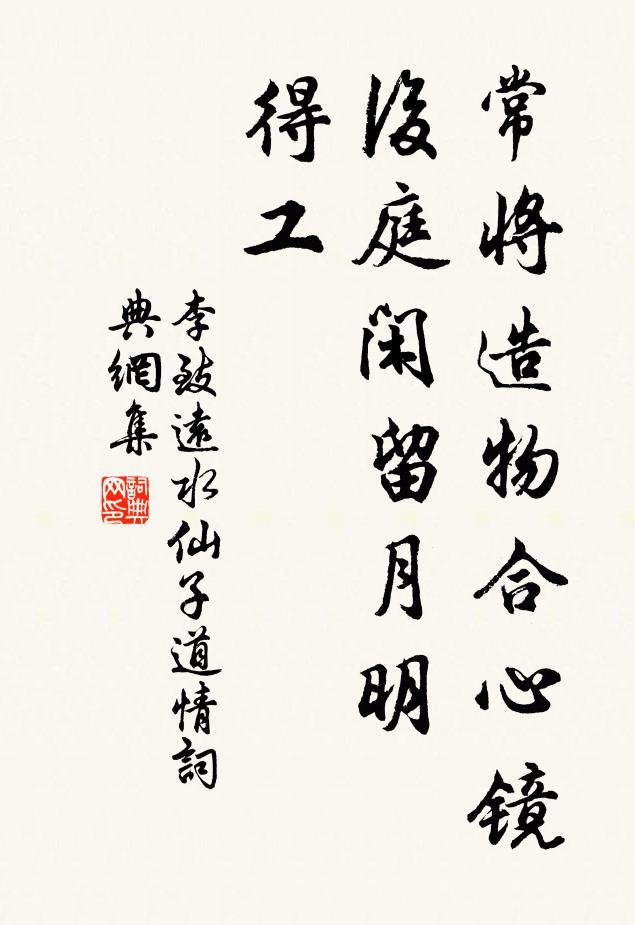 常將造物合心镜
後庭闲留月明
得工
李致遠水仙子道情詞
典網集
詞典
网印